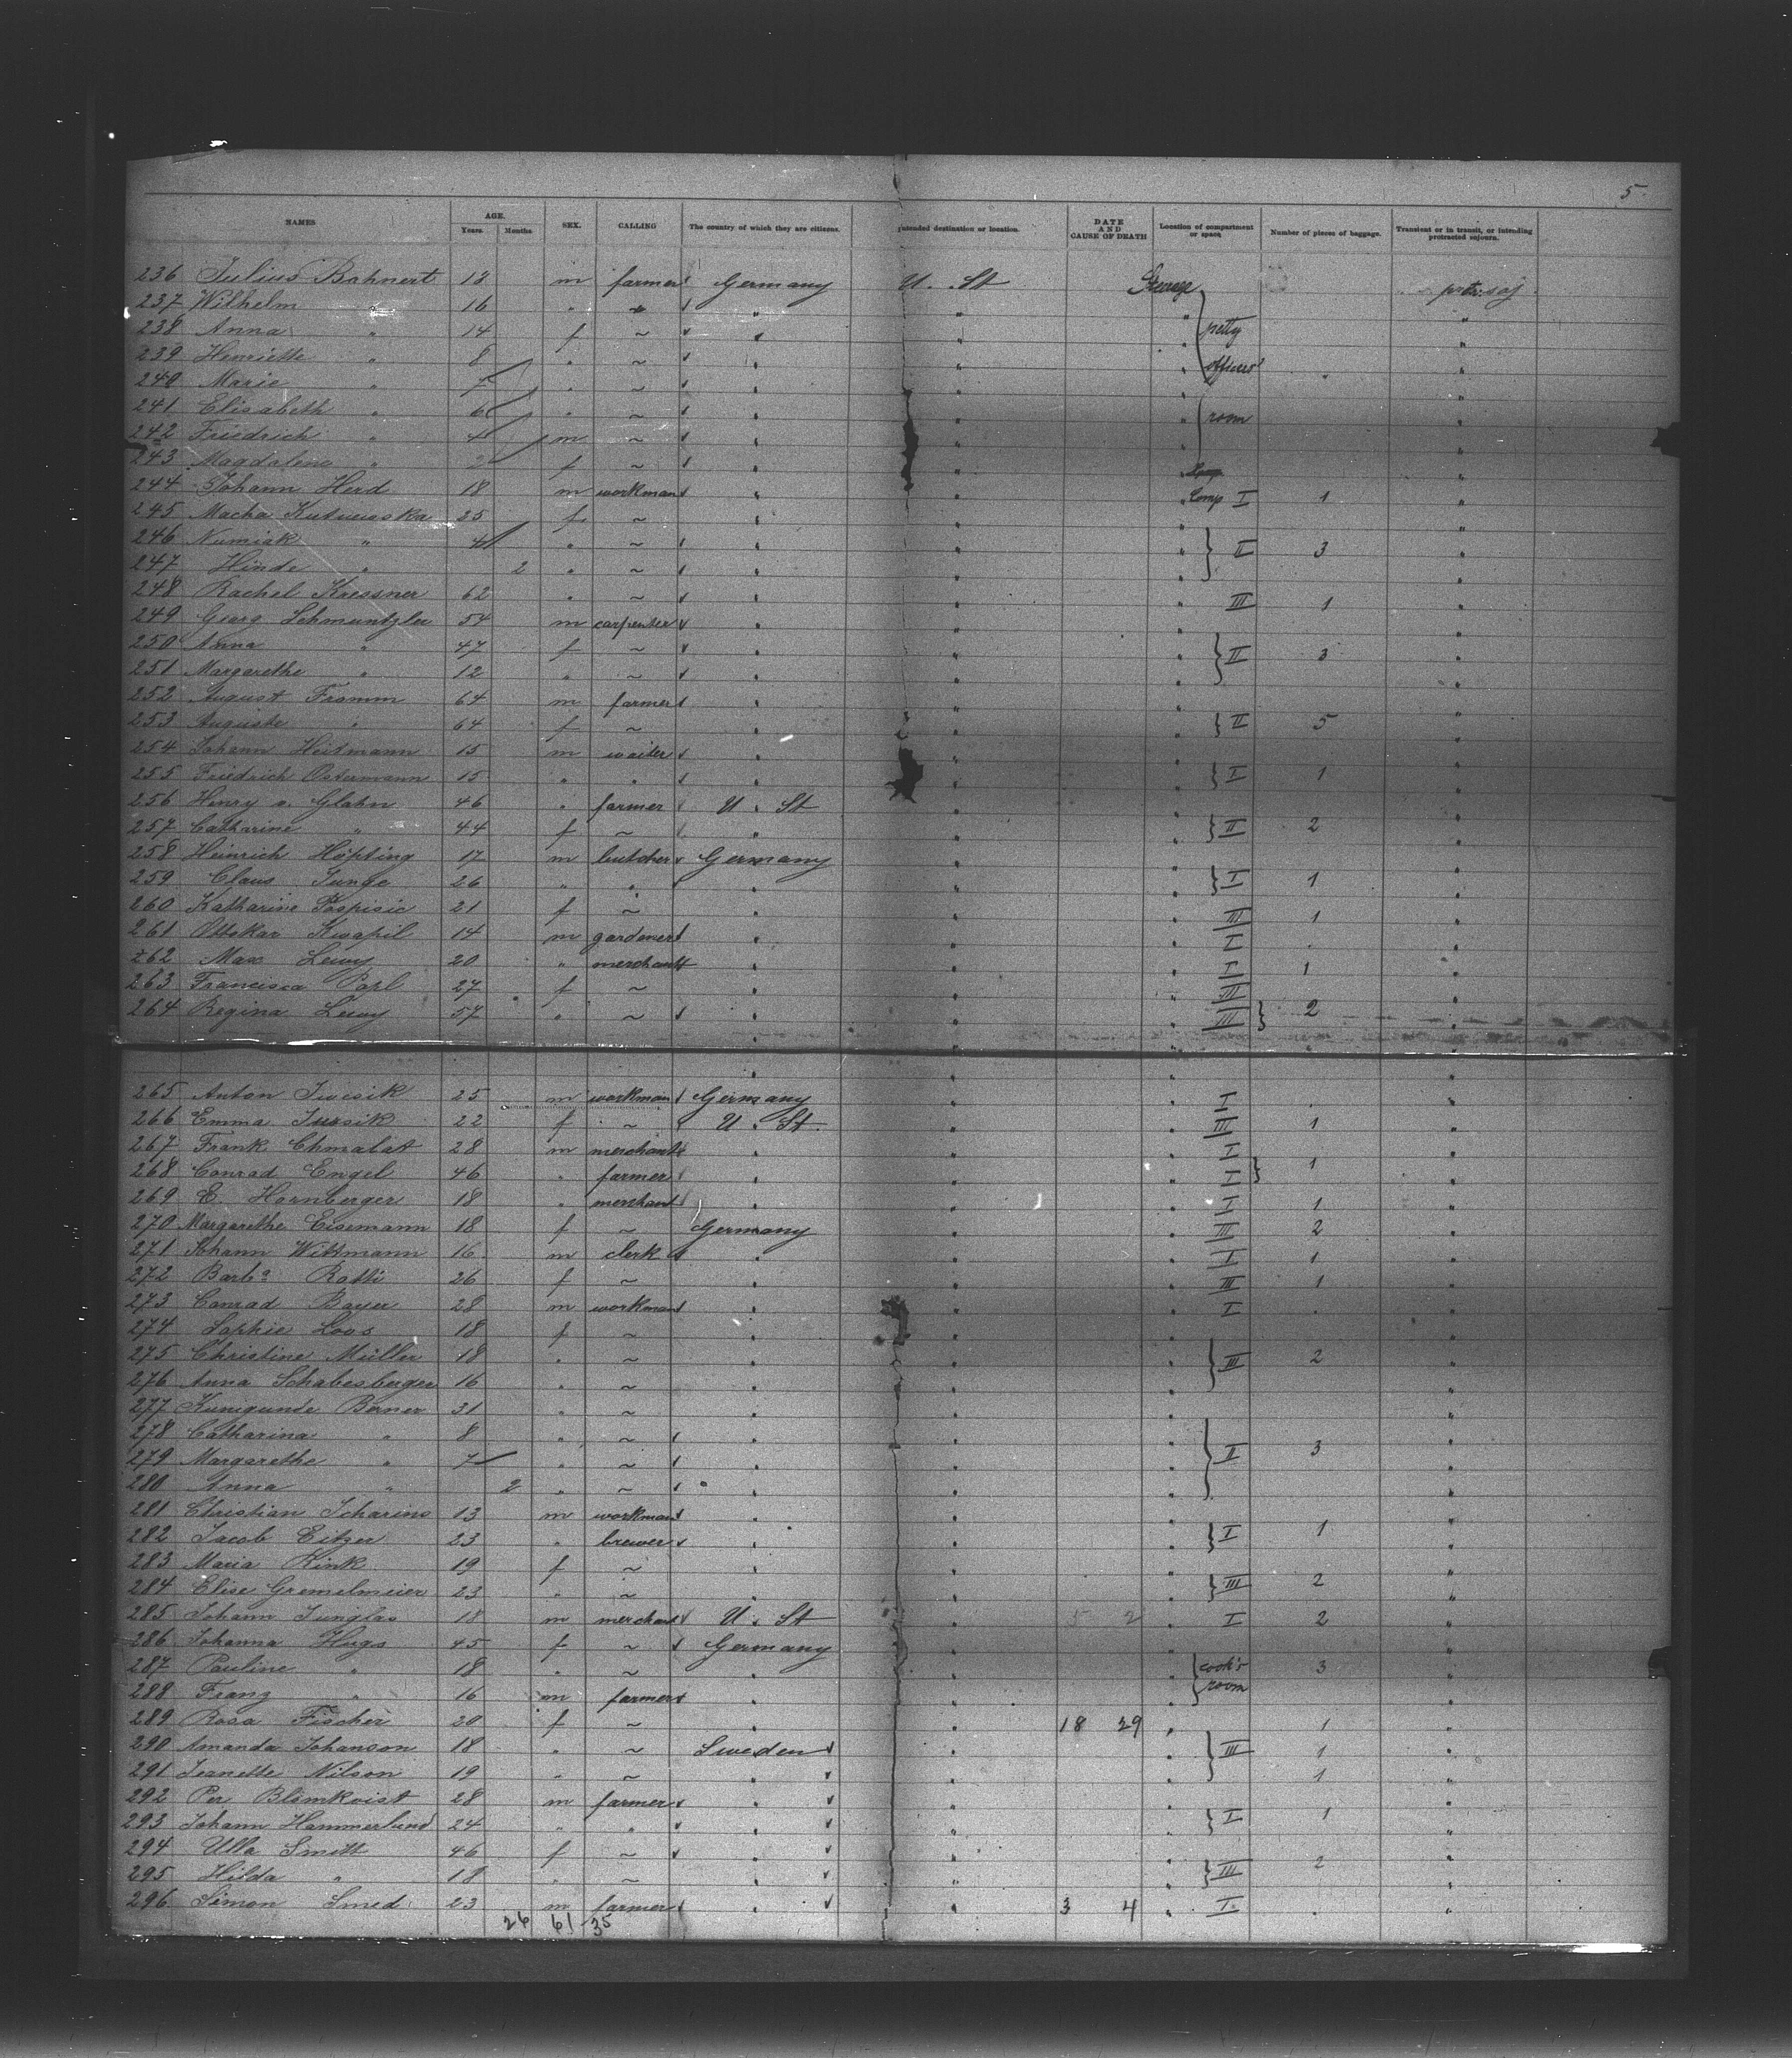 5.
NAMES AGE. Years. Months. SEX. CALLING The country of which they are citizens. Intended destination or location. DATE AND CAUSE OF DEATH Location of compartment or space. Number of pieces of baggage. Transient or in transit, or intending protracted sojourn.
236 Julius Bahnert 18 m farmer Germany U. St Steerage protr. soj
237 Wilhelm " 16 " "
238 Anna " 14 f ~ petty
239 Henriette " 8 " ~ officers'
240 Marie " 7 " ~
241 Elisabeth " 6 " ~ room
242 Friedrich " 4 m ~
243 Magdalene " 2 f ~
244 Johann Herd 18 m workman " Comp I 1
245 Macha Kutnewska 25 f ~
246 Numiak " 4 " ~ II 3
247 Hinde " 2 " ~
248 Rachel Kressner 62 " ~ III 1
249 Georg Schmuntzler 54 m carpenter
250 Anna " 47 f ~ II 3
251 Margarethe " 12 " ~
252 August Fromm 64 m farmer
253 Auguste " 64 f ~ II 5
254 Johann Heitmann 15 m waiter
255 Friedrich Ostermann 15 " " I 1
256 Henry v. Glahn 46 " farmer U. St
257 Catharine " 44 f ~ II 2
258 Heinrich Höpting 17 m butcher Germany
259 Claus Junge 26 " " I 1
260 Katharine Pospisic 21 f ~ III 1
261 Ottokar Kwapil 14 m gardener I
262 Max Lewy 20 " merchant I 1
263 Francisca Popl 27 f ~ III
264 Regina Lewy 57 " ~ III 2
265 Anton Jursik 25 m workman Germany I
266 Emma Jursik 22 f ~ U. St. III 1
267 Frank Chmalat 28 m merchant I
268 Conrad Engel 46 " farmer I 1
269 E. Hornberger 18 " merchant I 1
270 Margarethe Eisemann 18 f ~ Germany III 2
271 Johann Wittmann 16 m clerk I 1
272 Barba Rotti 26 f ~ III 1
273 Conrad Bayer 28 m workman I
274 Sophie Loos 18 f ~
275 Christine Müller 18 " ~ III 2
276 Anna Schabesberger 16 " ~
277 Kunigunde Berner 31 " ~
278 Catharina " 8 " ~
279 Margarethe " 7 " ~ II 3
280 Anna " 2 " ~
281 Christian Icharins 13 m workman
282 Jacob Eitzer 23 " brewer I 1
283 Maria Kink 19 f ~
284 Elise Gremelmeier 23 " ~ III 2
285 Johann Junglas 18 m merchant U. St 5 2 I 2
286 Johanna Hugs 45 f ~ Germany
287 Pauline " 18 " ~ cook's 3
288 Franz " 16 m farmer room
289 Rosa Fischer 20 f ~ 18 29 1
290 Amanda Johanson 18 " ~ Sweden III 1
291 Jeanette Nilson 19 " ~ 1
292 Per Blomkvist 28 m farmer
293 Johann Hammerlund 24 " " I 1
294 Ulla Smitt 46 f ~ 2
295 Hilda " 18 " ~ III
296 Simon Smed 23 m farmer 3 4 I.
26 61 35